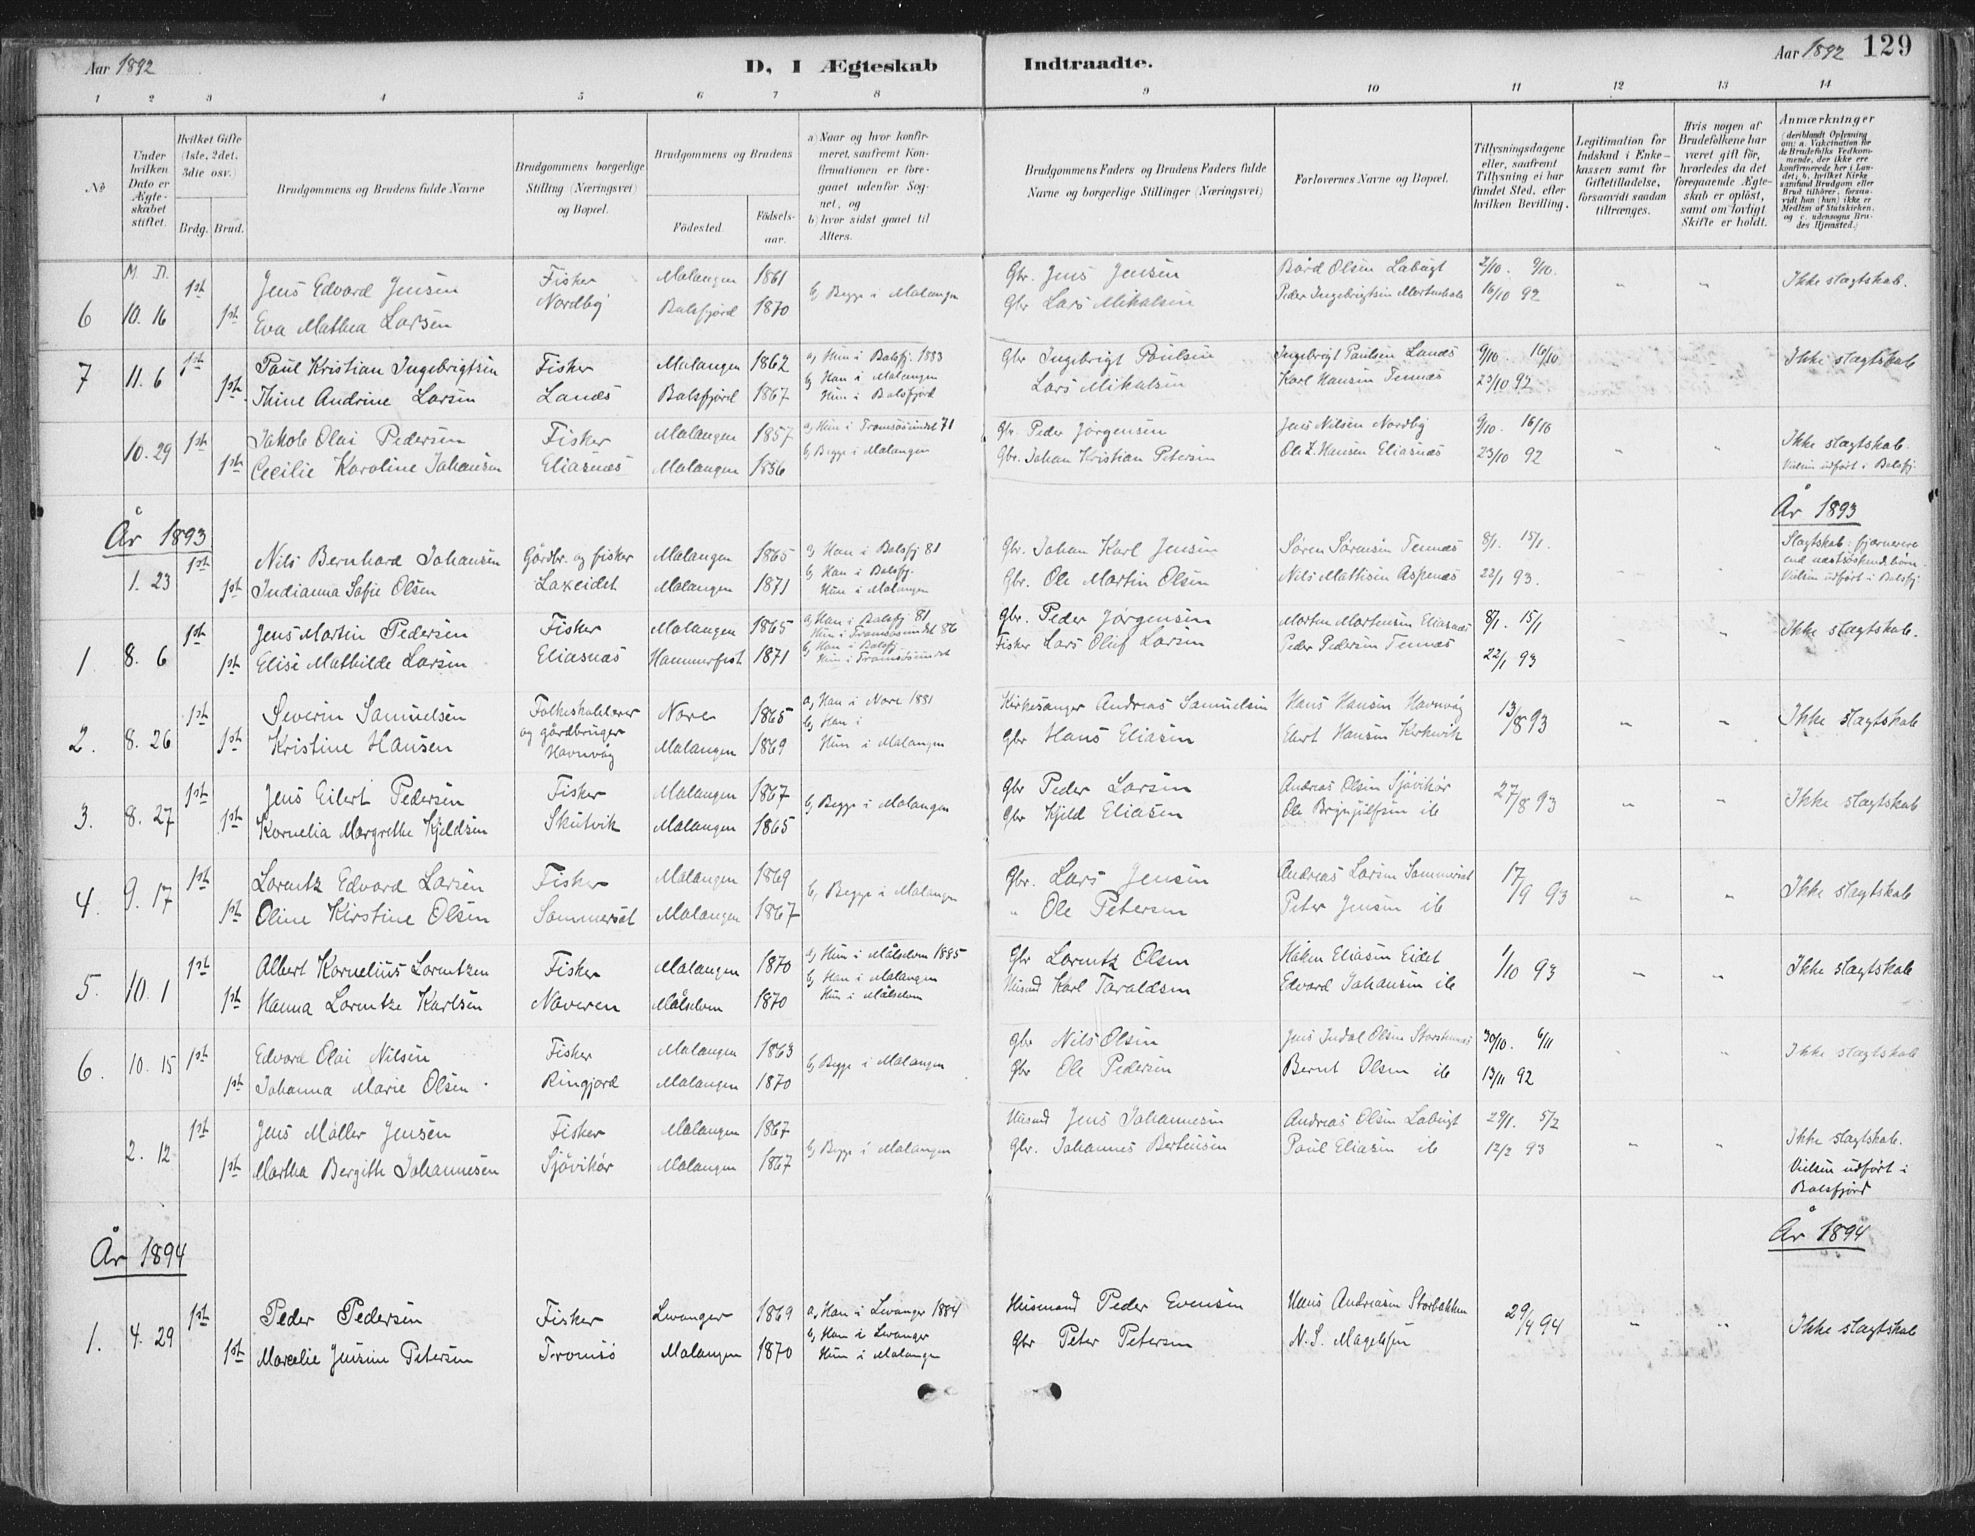 Aar 1892
D, I Ægteskab Indtraadte.
Aar 1892 129
1 2 3 4 5 6 7 8 9 10 11 12 13 14
No
Under hvilken Dato er Ægteskabet stiftet.
Hvilket Gifte (1ste, 2det. 3die osv.)
Brdg. Brud.
Brudgommens og Brudens fulde Navne
Brudgommens borgerlige Stilling (Næringsvei) og Bopæl.
Brudgommens og Brudens
Födested. Födselsaar.
a) Naar og hvor konfirmeret, saafremt Konfirmationen er foregaaet udenfor Sognet, og
b) hvor sidst gaaet til Alters.
Brudgommens Faders og Brudens Faders fulde Navne og borgerlige Stillinger (Næringsvei)
Forlovernes Navne og Bopæl.
Tillysningsdagene eller, saafremt Tillysning ei har fundet Sted, efter hvilken Bevilling.
Legitimation for Indskud i Enkekassen samt for Giftetilladelse, forsaavidt saadan tiltrænges.
Hvis nogen af Brudefolkene har været gift för, hvorledes da det foregaaende Ægteskab er oplöst, samt om lovligt Skifte er holdt.
Anmærkninger
(deriblandt Oplysning om: a. Vaccination for de Brudefolks Vedkommende, der ikke ere konfirmerede her i Landet; b. hvilket Kirkesamfund Brudgom eller Brud tilhörer, forsaavidt han (hun) ikke er Medlem af Statskirken, og c. udensogns Brudes Hjemsted.)
M. D.
6 10. 16 1st Jens Edvard Jensen Fisker Malangen 1861 b, Begge i Malangen Gbr. Jens Jensen Bård Olsen Labugt 2/10. 9/10. " " Ikke slægtskab.
1st Eva Mathea Larsen Nordby Balsfjord 1870 Gbr. Lars Mikalsen Peder Ingebrigtsen 16/10 92
7 11. 6 1st Paul Kristian Ingebrigtsen Fisker Malangen 1862 a, Hun i Balsfj. 1883 Gbr Ingebrigt Paulsen Ingebrigt Paulsen Lanæs 9/10. 16/10 Ikke slægtskab
1st Thine Andrine Larsen Lanæs Balsfjord 1867 b, Han i Malangen Lars Mikalsen Karl Hansen Tennæs 23/10 92
Hun i Balsfjord
10. 29 1st Jakob Olai Pedersen Fisker Malangen 1857 a, Hun i Tromsösundet 71 Gbr. Peder Jørgensen Jens Nilsen Nordby 9/10. 16/10 " " Ikke slægtskab.
1st Cecilie Karoline Johansen Eliasnæs Malangen 1856 b, Begge i Malangen Gbr. Johan Kristian Petersen Ole Z. Hansen Eliasnæs 23/10 92 Vielsen udført i Balsfj.
År 1893 År 1893
1. 23 1st Nils Bernhard Johansen Gårdbr. og fisker Malangen 1865 a, Han i Balsfj 81 Gbr. Johan Karl Jensen Søren Sørensen Tennæs 8/1. 15/1. Slægtskab: fjærnere end næstsøskendebørn.
1st Indianna Sofie Olsen Laxeidet Malangen 1871 b, Han i Balsfj. Gbr. Ole Martin Olsen Nils Mathisen Aspenæs 22/1 93. Vielsen udført i Balsfj
Hun i Malangen
1. 8. 6 1st Jens Martin Pedersen Fisker Malangen 1865 a, Han i Balsfj 81 Gbr. Peder Jørgensen Morten Mortensen Eliasnæs 8/1. 15/1 Ikke slægtskab.
Hun i Tromsösundet 86
1st Elise Mathilde Larsen Eliasnæs Hammerfest 1871 b, Han i Balsfj. Fisker Lars Oluf Larsen Peder Pedersen Tennæs 22/1 93
Hun i Tromsösundet
2. 8. 26 1st Severin Samuelsen Folkeskolelærer Nore 1865 a, Han i Nore 1881 Kirkesanger Andreas Samuelsen Hans Hansen Havnvåg 13/8 93 " " Ikke slægtskab
1st Kristine Hansen og gårdbruger Malangen 1869 b, Han i Gbr Hans Eliasen Ebert Hansen Kirkevik
Havnvåg Hun i Malangen
3. 8. 27 1st Jens Eilert Pedersen Fisker Malangen 1867 b, Begge i Malangen Gbr Peder Larsen Andreas Olsen Sjøvikør 27/8 93 " " Ikke slægtskab
1st Kornelia Margrethe Kjeldsen Skutvik Malangen 1865 Gbr Kjeld Eliasen Ole Brynjulfsen ib
4. 9. 17 1st Lorentz Edvard Larsen Fisker Malangen 1869 b, Begge i Malangen Gbr. Lars Jensen Andreas Larsen Sommerset 17/9 93 " " Ikke slægtskab
1st Oline Kirstine Olsen Sommerset Malangen 1867 " Ole Petersen Peter Jensen ib
5. 10. 1 1st Albert Kornelius Lorentzen Fisker Malangen 1870 a, Hun i Målselven 1885 Gbr Lorentz Olsen Håken Eliasen Eidet 1/10 93 " " Ikke slægtskab
1st Hanna Lorentze Karlsen Naveren Målselven 1870 b, Han i Malangen Husmd Karl Taraldsen Edvard Johansen ib
Hun i Målselven
6. 10. 15 1st Edvard Olai Nilsen Fisker Malangen 1863 b, Begge i Malangen Gbr Nils Olsen Jens Indal Olsen Storstennæs 30/10. 6/11 " " Ikke slægtskab
1st Johanna Marie Olsen Ringjord Malangen 1870 Gbr Ole Pedersen Bernt Olsen ib 13/11 92
2. 12 1st Jens Møller Jensen Fisker Malangen 1867 b, Begge i Malangen Husmd Jens Johannesen Andreas Olsen Labugt 29/1. 5/2 " " Ikke slægtskab.
1st Martha Bergith Johannesen Sjøvikør Malangen 1867 Gbr. Johannes Bertensen Paul Eliasen ib 12/2 93 Vielsen udført i
Balsfjord
År 1894 År 1894
1. 4. 29 1st Peder Pedersen Fisker Levanger 1869 a, Han i Levanger 1884 Husmand Peder Evensen Hans Andreasen Storbakken 29/4 94 " " Ikke slægtskab
1st Marcelie Jensine Petersen Tromsö Malangen 1870 b, Han i Levanger Gbr Peter Petersen N. S. Magelssen
Hun i Malangen